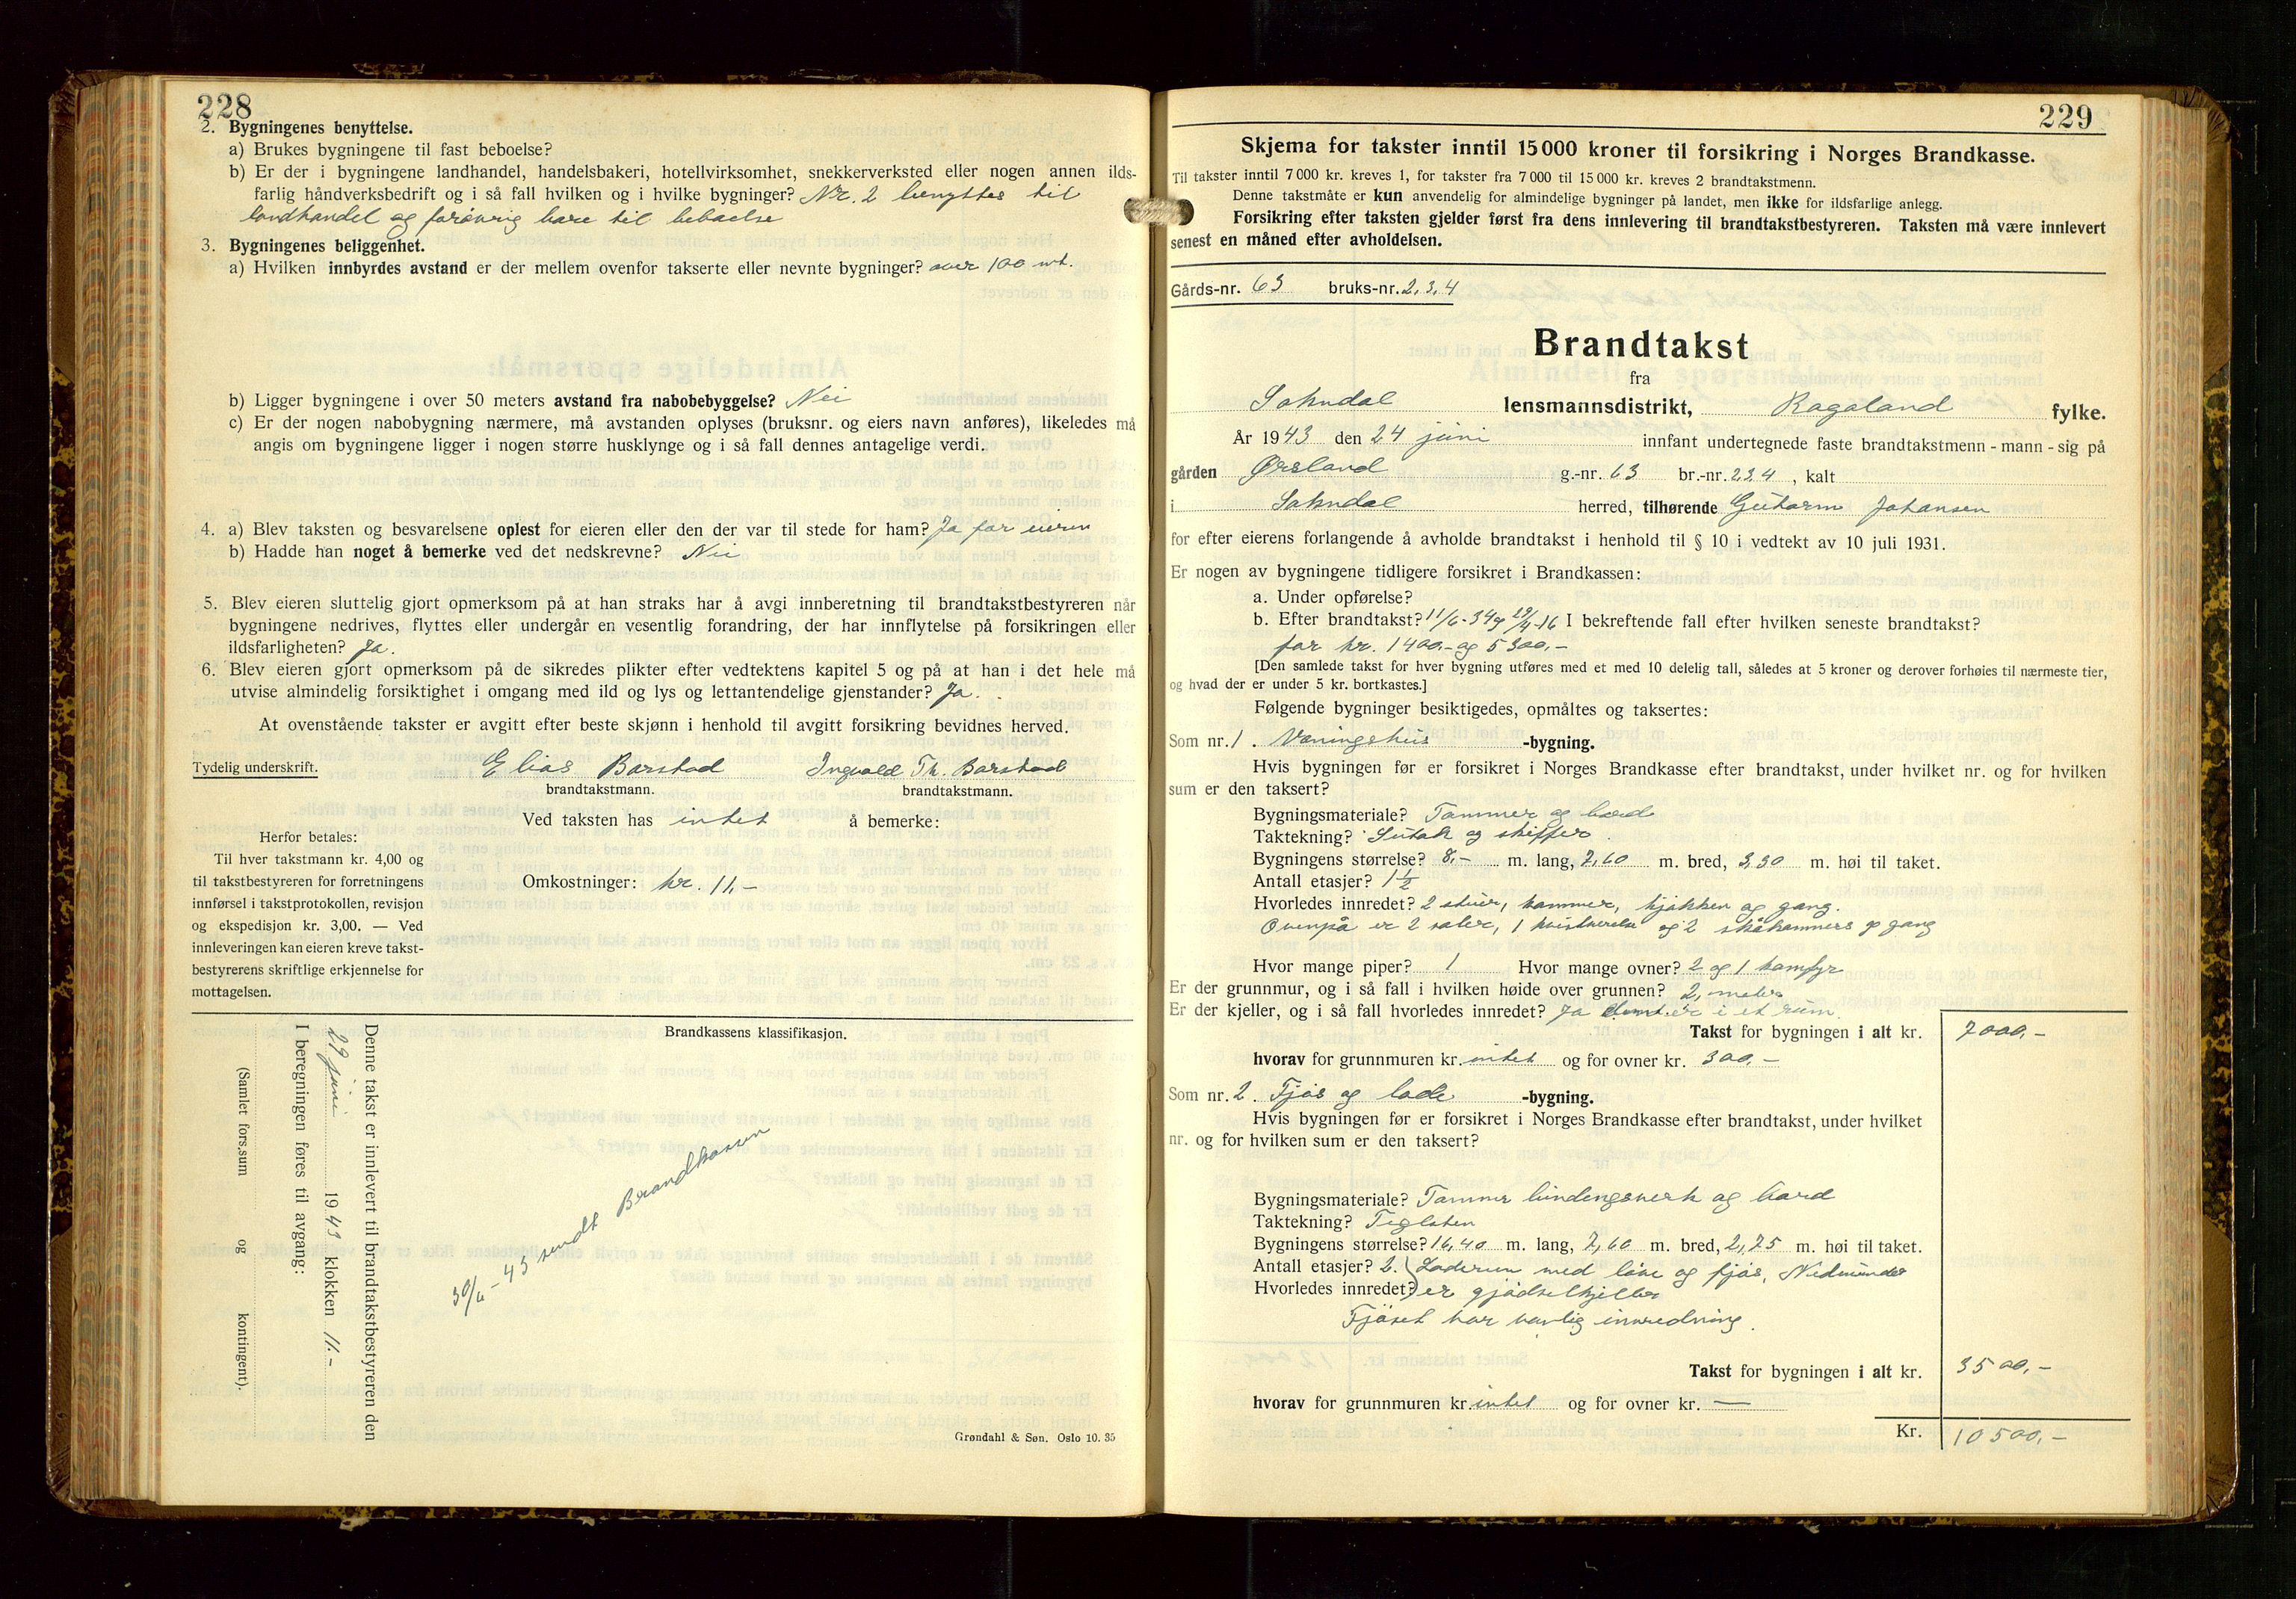 228
2. Bygningenes benyttelse.
a) Brukes bygningene til fast beboelse?
b) Er der i bygningene landhandel, handelsbakeri, hotellvirksomhet, snekkerverksted eller nogen annen ilds-
farlig håndverksbedrift og i så fall hvilken og i hvilke bygninger? Nr. 2 benyttes til
landhandel og forøvrig bare til beboelse
3. Bygningenes beliggenhet.
a) Hvilken innbyrdes avstand er der mellem ovenfor takserte eller nevnte bygninger? over 100 mt.
b) Ligger bygningene i over 50 meters avstand fra nabobebyggelse? Nei
c) Er der nogen nabobygning nærmere, må avstanden oplyses (bruksnr. og eiers navn anføres), likeledes må
angis om bygningene ligger i nogen større husklynge og i så fall dennes antagelige verdi.
4. a) Blev taksten og besvarelsene oplest for eieren eller den der var til stede for ham? Ja for eieren
b) Hadde han noget å bemerke ved det nedskrevne? Nei
5. Blev eieren sluttelig gjort opmerksom på at han straks har å avgi innberetning til brandtakstbestyreren når
bygningene nedrives, flyttes eller undergår en vesentlig forandring, der har innflytelse på forsikringen eller
ildsfarligheten? Ja.
6. Blev eieren gjort opmerksom på de sikredes plikter efter vedtektens kapitel 5 og på at han i det hele må
utvise almindelig forsiktighet i omgang med ild og lys og lettantendelige gjenstander? Ja.
At ovenstående takster er avgitt efter beste skjønn i henhold til avgitt forsikring bevidnes herved.
Tydelig underskrift. Elias Barstad Ingvald Th. Barstad
brandtakstmann. brandtakstmann.
Ved taksten has intet å bemerke:
Herfor betales:
Til hver takstmann kr. 4,00 og
til takstbestyreren for forretningens
innførsel i takstprotokollen, revisjon
og ekspedisjon kr. 3,00. — Ved
innleveringen kan eieren kreve takst-
bestyrerens skriftlige erkjennelse for
mottagelsen.
Omkostninger: kr. 11,-
Brandkassens klassifikasjon.
Denne takst er innlevert til brandtakstbestyreren den
29 juni 1943 klokken 11.-
I beregningen føres til avgang:
(Samlet fors.sum og kontingent).
30/6-43 sendt Brandkassen
Grøndahl & Søn. Oslo 10. 35
229
Skjema for takster inntil 15 000 kroner til forsikring i Norges Brandkasse.
Til takster inntil 7 000 kr. kreves 1, for takster fra 7 000 til 15 000 kr. kreves 2 brandtakstmenn.
Denne takstmåte er kun anvendelig for almindelige bygninger på landet, men ikke for ildsfarlige anlegg.
Forsikring efter taksten gjelder først fra dens innlevering til brandtakstbestyreren. Taksten må være innlevert
senest en måned efter avholdelsen.
Gårds-nr. 63 bruks-nr. 2,3,4
Brandtakst
fra
Sokndal lensmannsdistrikt, Rogaland fylke.
År 1943 den 24 juni innfant undertegnede faste brandtakstmenn - mann - sig på
gården Ørsland g.-nr. 63 br.-nr. 234, kalt
i Sokndal herred, tilhørende Gutorm Johansen
for efter eierens forlangende å avholde brandtakst i henhold til § 10 i vedtekt av 10 juli 1931.
Er nogen av bygningene tidligere forsikret i Brandkassen:
a. Under opførelse?
b. Efter brandtakst? 11/6-34 og 29/4-16 I bekreftende fall efter hvilken seneste brandtakst?
for kr. 1400,- og 5300,-
[Den samlede takst for hver bygning utføres med et med 10 delelig tall, således at 5 kroner og derover forhøies til nærmeste tier,
og hvad der er under 5 kr. bortkastes.]
Følgende bygninger besiktigedes, opmåltes og taksertes:
Som nr. 1. Våningshus -bygning.
Hvis bygningen før er forsikret i Norges Brandkasse efter brandtakst, under hvilket nr. og for hvilken
sum er den taksert?
Bygningsmateriale? Tømmer og bord
Taktekning? Sutak og skiffer.
Bygningens størrelse? 8,- m. lang, 7,60 m. bred, 3,30 m. høi til taket.
Antall etasjer? 1 1/2
Hvorledes innredet? 2 stuer, kammer, kjøkken og gang.
Ovenpå er 2 saler, 1 kvistverelse og 2 skåkammers og gang
Hvor mange piper? 1 Hvor mange ovner? 2 og 1 komfyr
Er der grunnmur, og i så fall i hvilken høide over grunnen? 2, meter
Er der kjeller, og i så fall hvorledes innredet? Ja i et rum.
Takst for bygningen i alt kr. 7000,-
hvorav for grunnmuren kr. intet og for ovner kr. 300,-
Som nr. 2. Fjøs og løde -bygning.
Hvis bygningen før er forsikret i Norges Brandkasse efter brandtakst, under hvilket
nr. og for hvilken sum er den taksert?
Bygningsmateriale? Tømmer bindingsverk og bord
Taktekning? Teglsten
Bygningens størrelse? 16,40 m. lang, 7,60 m. bred, 2,75 m. høi til taket.
Antall etasjer? 2. Løderum med løve og fjøs, Nedunder
Hvorledes innredet? er gjødselkjeller
Fjøset har vanlig innredning.
Takst for bygningen i alt kr. 3500,-
hvorav for grunnmuren kr. intet og for ovner kr. —
Kr. 10500,-